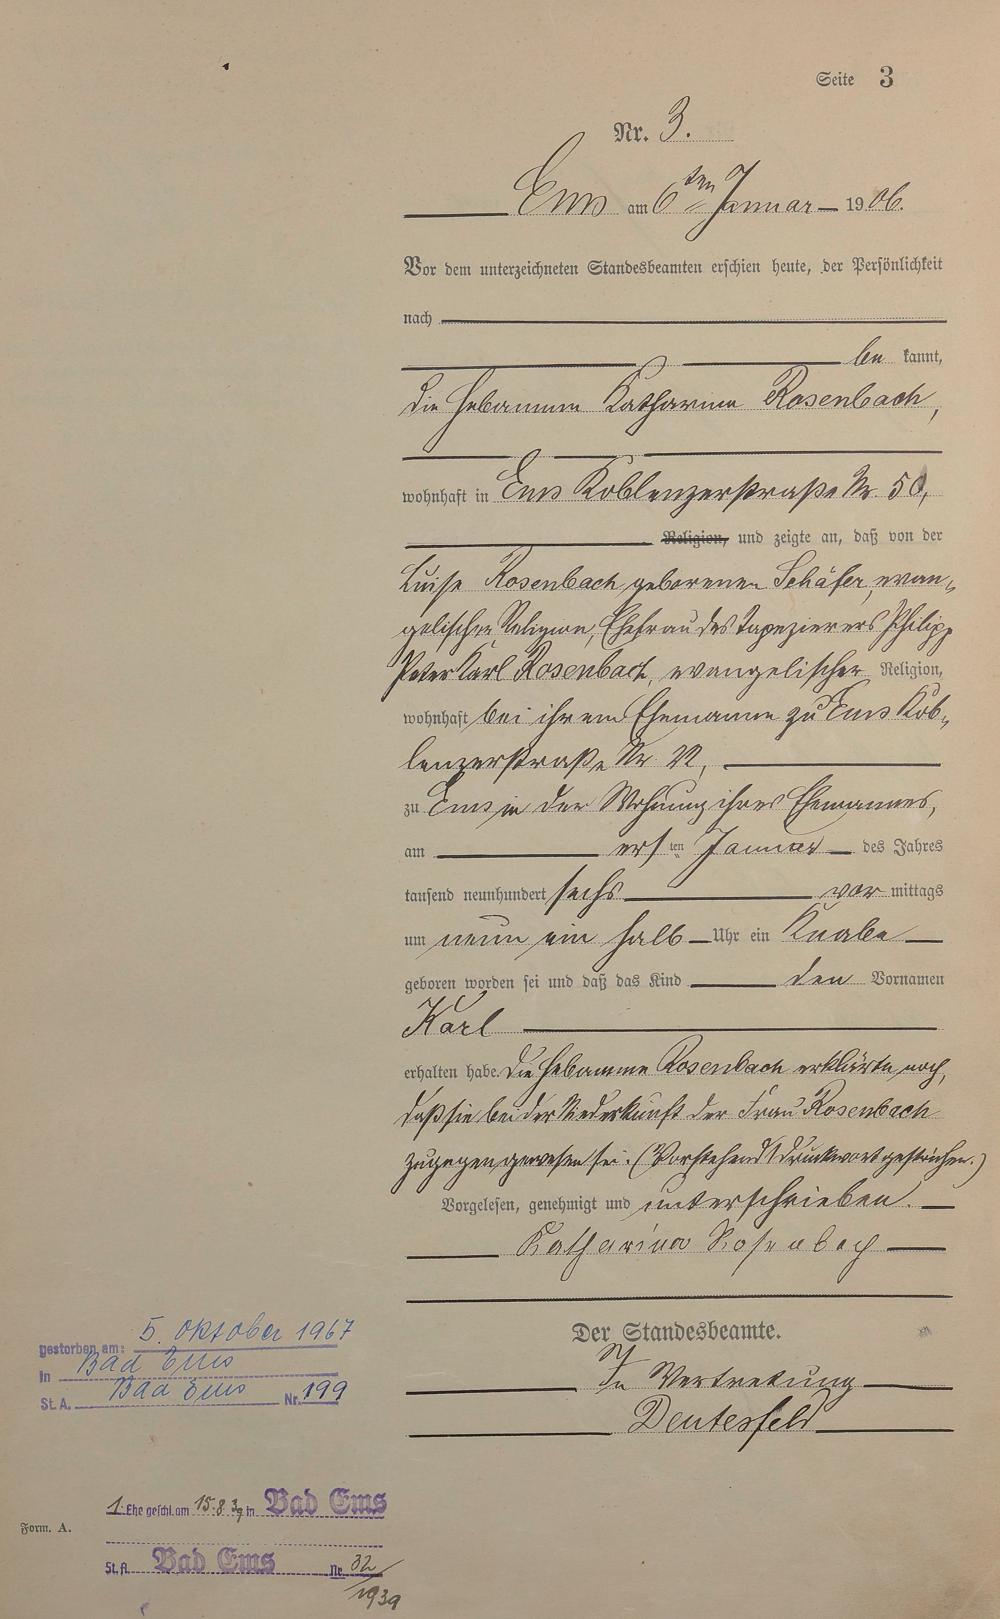 Seite 3
Nr. 3.
Ems am 6ten Januar 1906.
Vor dem unterzeichneten Standesbeamten erschien heute, der Persönlichkeit
nach
bekannt,
die Hebamme Katharina Rosenbach,
wohnhaft in Ems Koblenzerstraße Nr. 50,
Religion, und zeigte an, daß von der
Luise Rosenbach geborenen Schäfer, evan-
gelischer Religion, Ehefrau des Tapezierers Philipp
Peter Karl Rosenbach, evangelischer Religion,
wohnhaft bei ihrem Ehemanne zu Ems Kob-
lenzerstraße Nr.
zu Ems in der Wohnung ihres Ehemannes,
am ersten Januar des Jahres
tausend neunhundert sechs vormittags
um neun ein halb Uhr ein Knabe
geboren worden sei und daß das Kind den Vornamen
Karl
erhalten habe. Die Hebamme Rosenbach erklärte noch,
daß sie bei der Niederkunft der Frau Rosenbach
zugegen gewesen sei. (Vorstehend 1 Druckwort gestrichen.)
Vorgelesen, genehmigt und unterschrieben.
Katharina Rosenbach
Der Standesbeamte.
In Vertretung
gestorben am: 5. Oktober 1967
In Bad Ems
St. A. Bad Ems Nr. 199
1. Ehe geschl. am 15.8.39 in Bad Ems
St. A. Bad Ems Nr. 32/1939
Form. A.